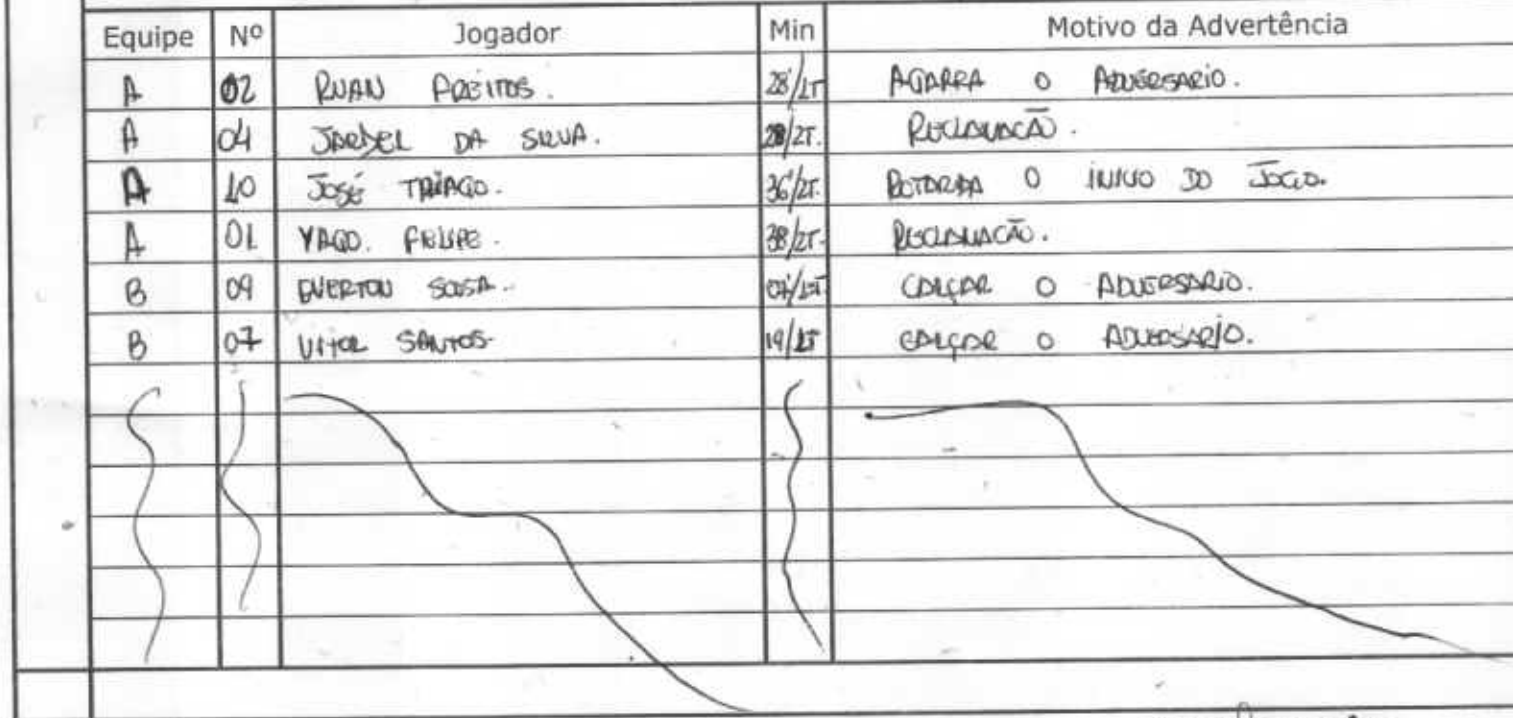 Equipe Nº Jogador Min Motivo da Advertência
A 02 RUAN FREITOS. 28'/1T AGARRA O ADVERSARIO.
A 04 JARDEL DA SILVA. 28/2T. RECLAMACÃO.
A 10 JOSÉ THIAGO. 36'/2T. RETARDA O INICIO DO JOGO.
A 01 YAGO. FELIPE. 38/2T. RECLAMACÃO.
B 09 EVERTON SOUSA. CALÇAR O ADVERSARIO.
B 07 VITOR SANTOS 19/1T CALÇAR O ADVERSARIO.